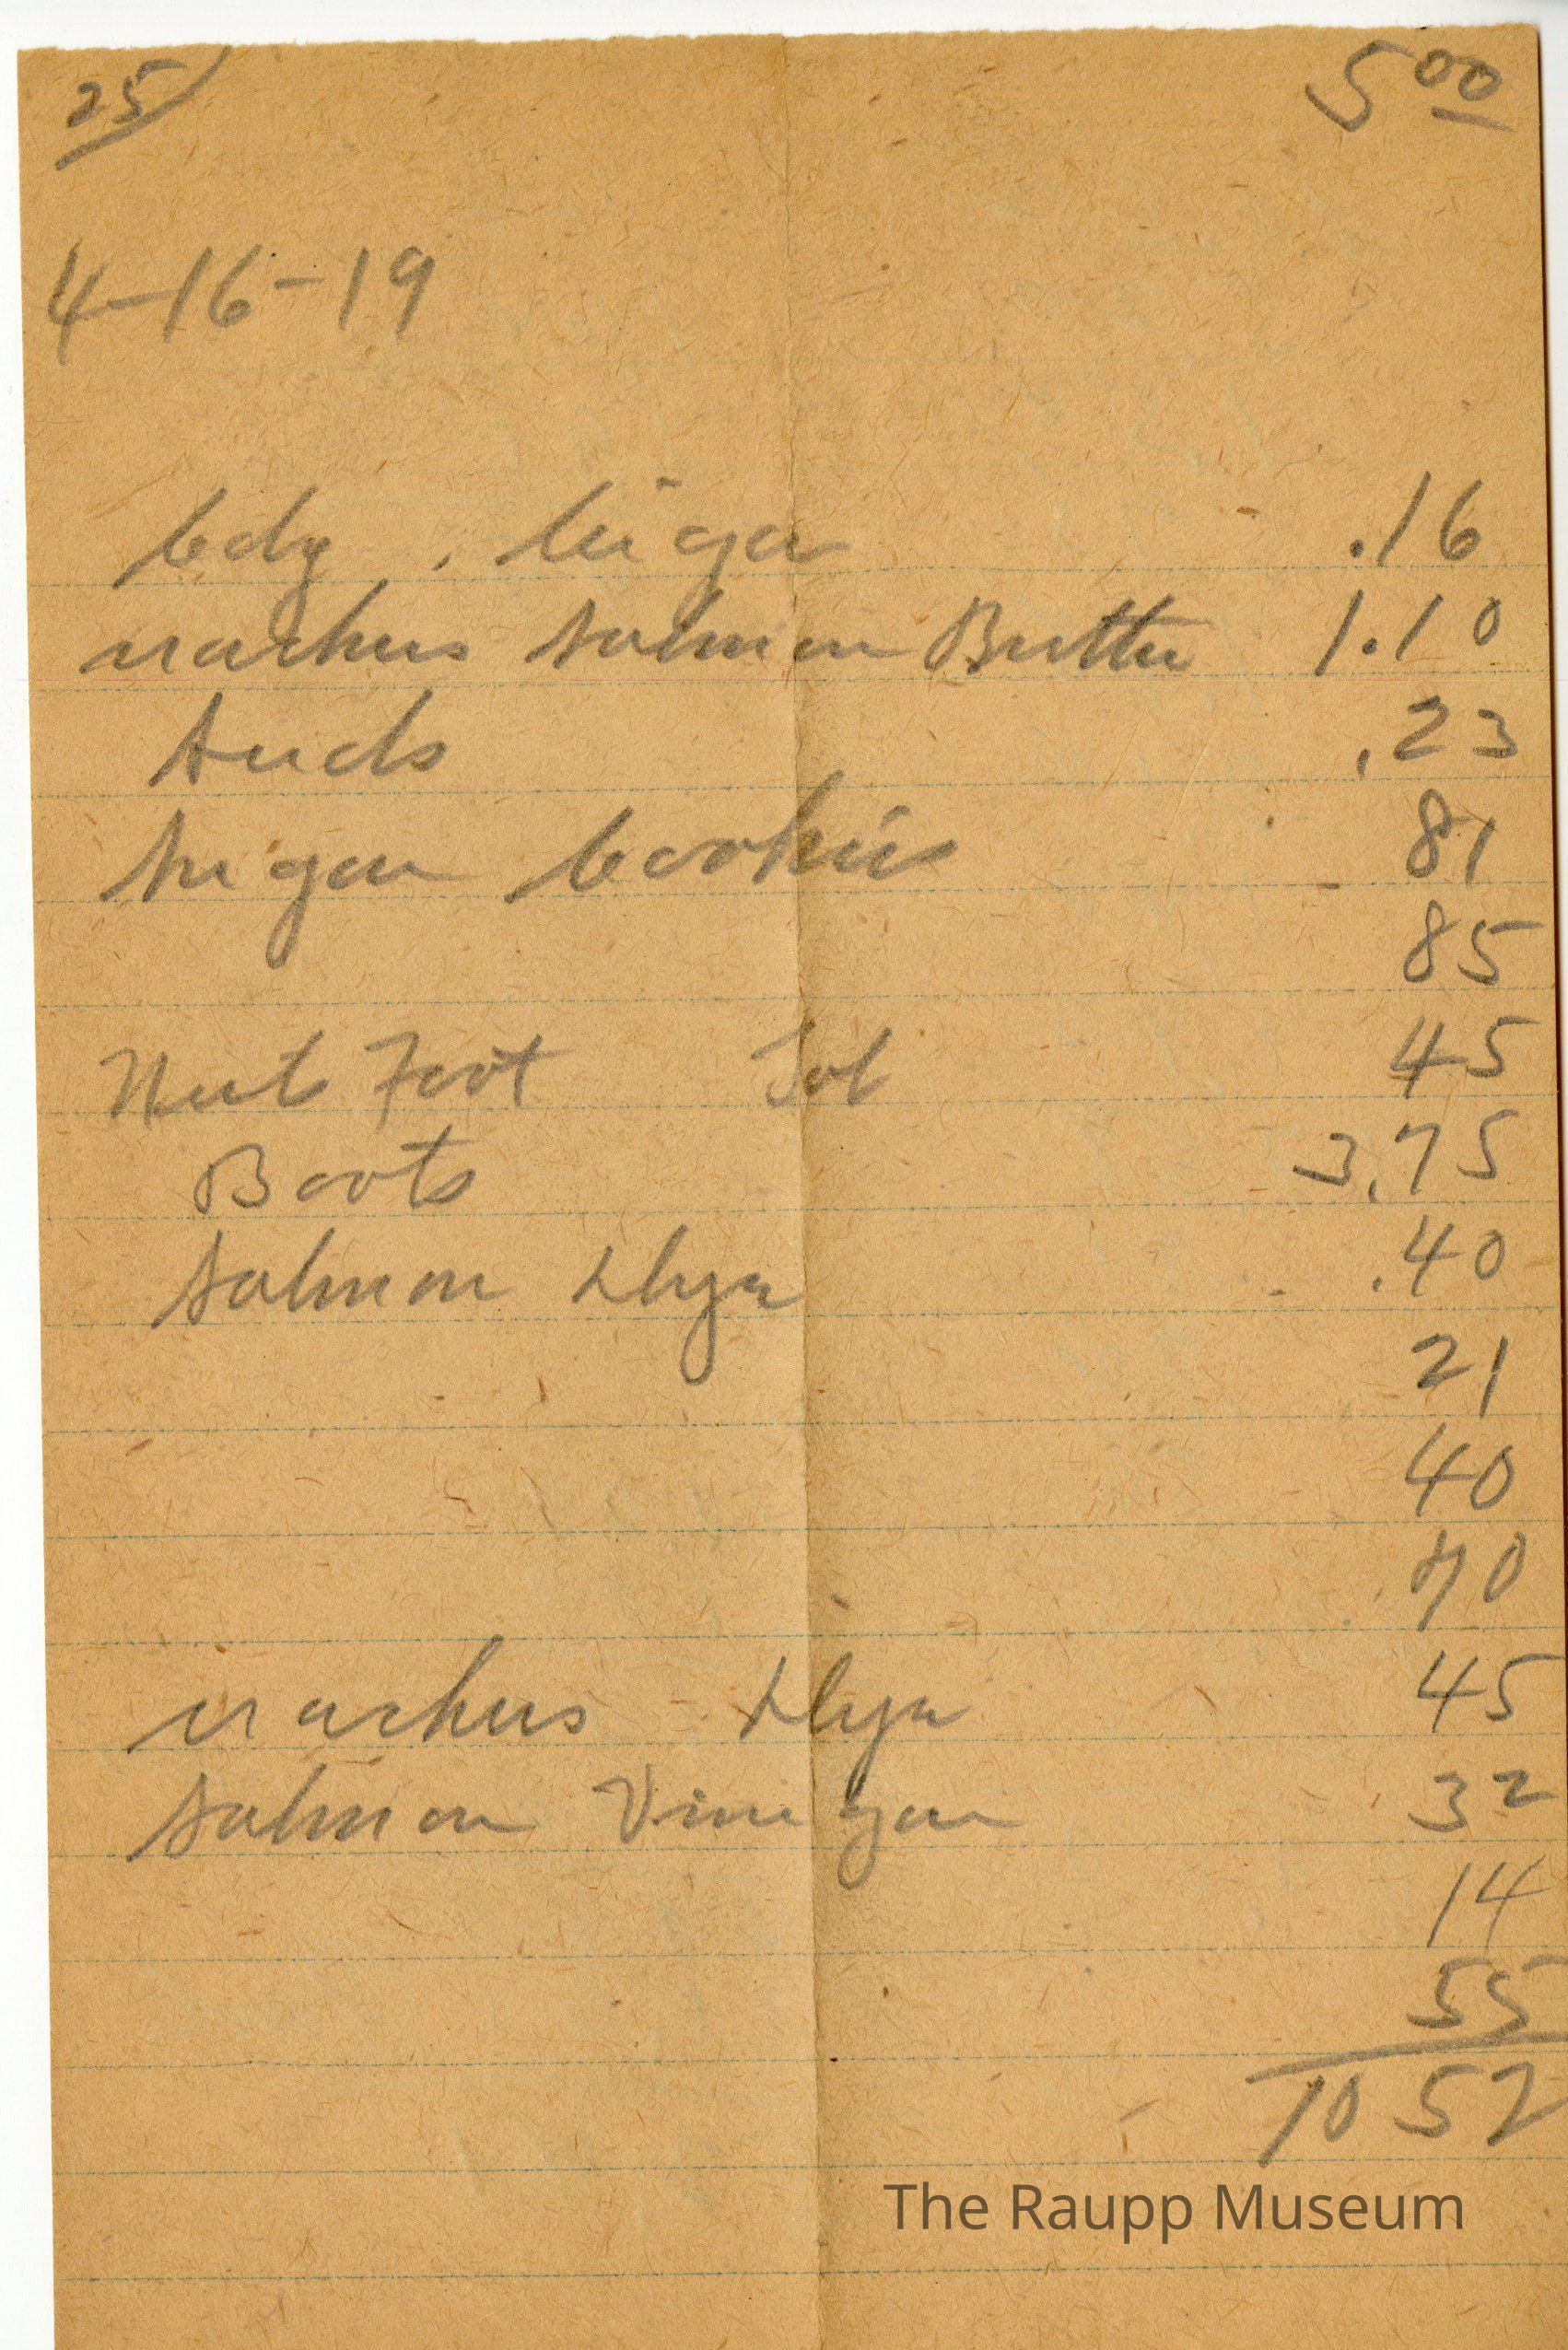 25 5 00
4-16-19
Cdy. Cigar .16
crackers salmon Butter 1.10
seeds .23
sugar Cookies 81
85
Neets Foot Tob 45
Boots 3.75
salmon .40
21
40
70
crackers 45
salmon Vinegar 32
14
55
10 52
The Raupp Museum